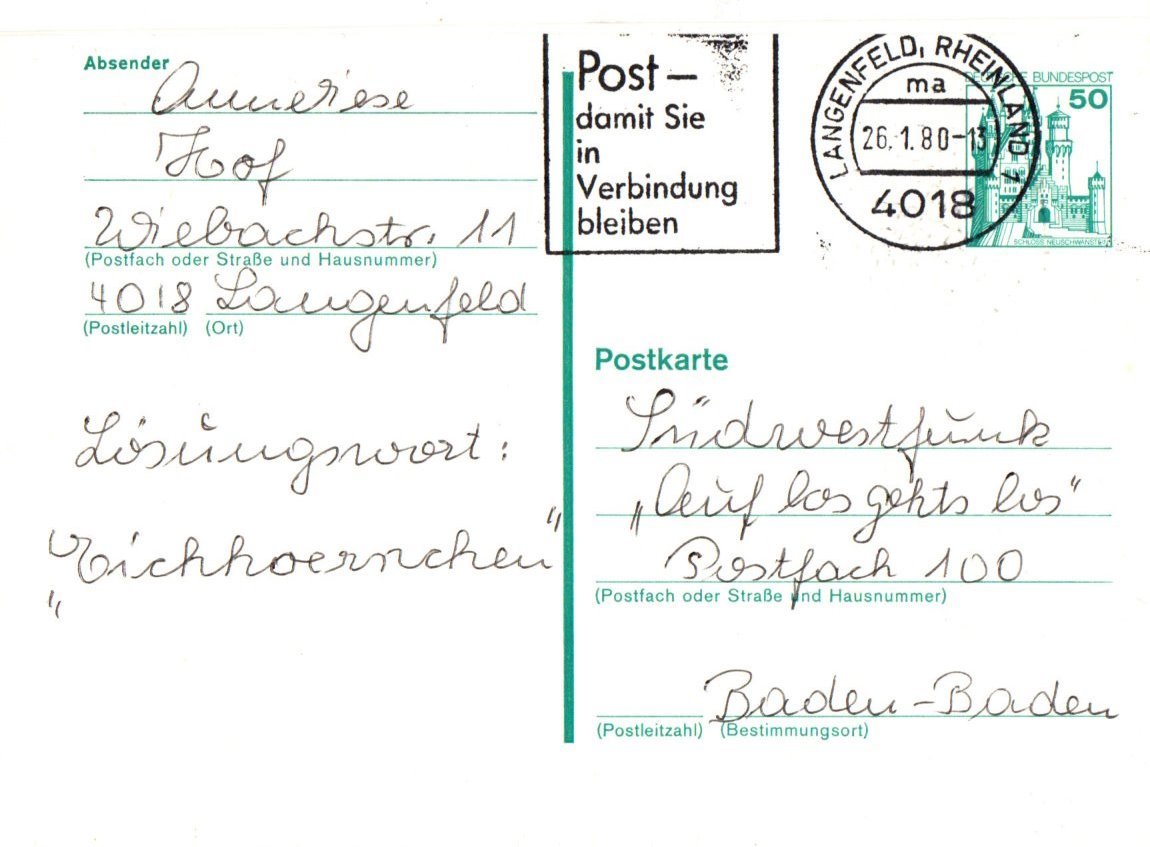 Absender
Anneliese
Hof
Wiebachstr. 11
(Postfach oder Straße und Hausnummer)
4018 Langenfeld
(Postleitzahl) (Ort)
Lösungswort:
„Eichhoernchen"
Post —
damit Sie
in
Verbindung
bleiben
LANGENFELD, RHEINLAND 1
ma
26.1.80-13
4018
DEUTSCHE BUNDESPOST
50
SCHLOSS NEUSCHWANSTEIN
Postkarte
Südwestfunk
„Auf los gehts los"
Postfach 100
(Postfach oder Straße und Hausnummer)
Baden-Baden
(Postleitzahl) (Bestimmungsort)